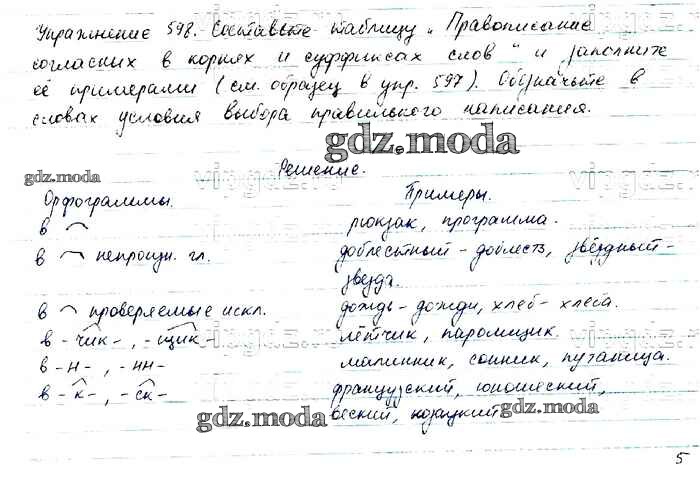 Упражнение 598. Составьте таблицу „Правописание
согласных в корнях и суффиксах слов“ и заполните
её примерами (см. образец в упр. 597). Обозначьте в
словах условия выбора правильного написания.
gdz.moda
Решение.
gdz.moda
Орфограммы. Примеры.
в рюкзак, программа.
в непроизн. гл. доблестный - доблесть, звёздный -
звезда.
в проверяемые искл. дождь - дожди, хлеб - хлеба.
в -чик-, -щик- лётчик, паромщик.
в -н-, -нн- малинник, сонник, путаница.
в -к-, -ск- французский, юношеский,
веский, козацкий
gdz.moda gdz.moda
5